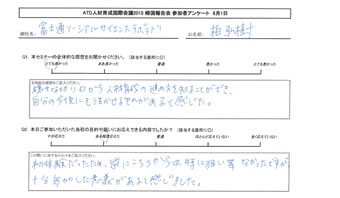 ATD人材育成国際会議2015 帰国報告会 参加者アンケート 6月1日
御社名： 富士通ソーシアルサイエンスラボラトリ お名前：
Q1. 本セミナーの全体的な感想をお聞かせください。（該当する箇所に○）
とても良かった まあ良かった 普通
様々な切り口から人材育成の進め方を知ることができ、
自分の今後にも活かせるものがあると感じた。
Q2. 本日ご参加いただいた当初の目的や狙いにお応えできる内容でしたか？（該当する箇所に○）
普通
初体験だったため、逆にこちらからは特に狙い等なかったですが、
十分参加した意義があると感じました。